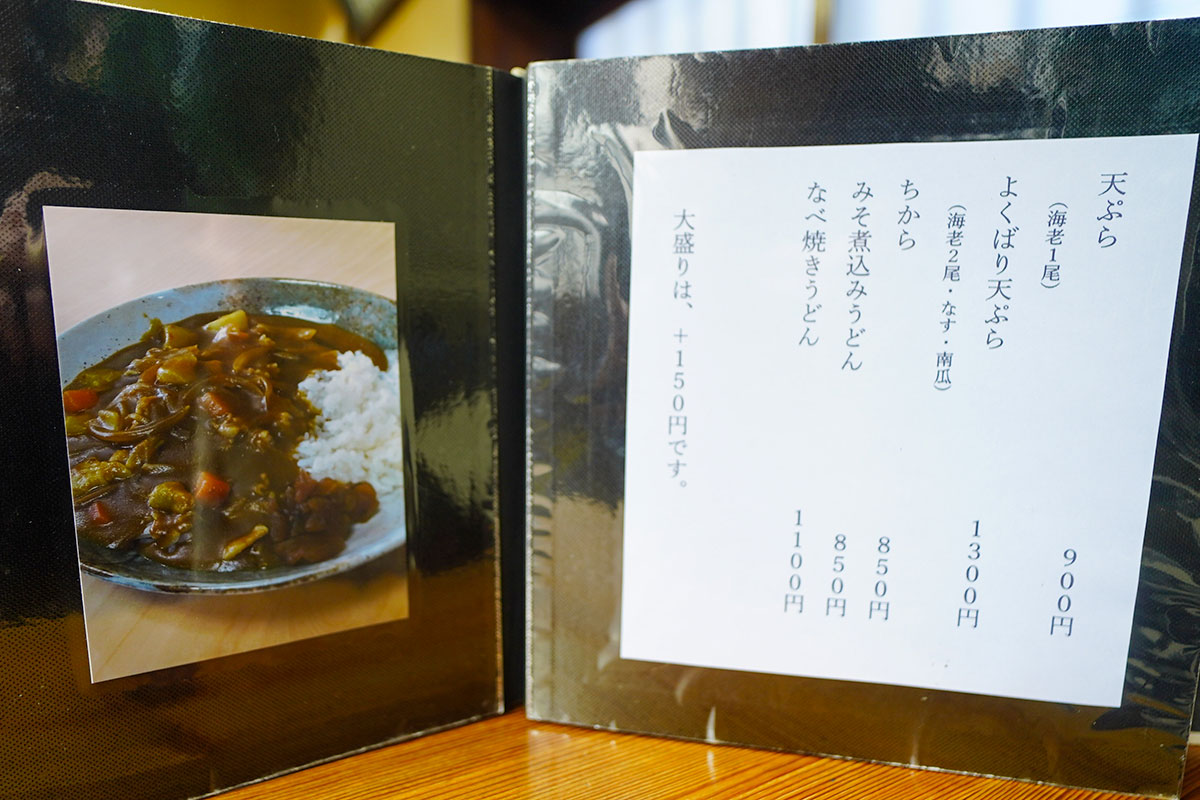 天ぷら
（海老1尾）
900円
よくばり天ぷら
（海老2尾・なす・南瓜）
1300円
ちから
850円
みそ煮込みうどん
850円
なべ焼きうどん
1100円
大盛りは、＋150円です。